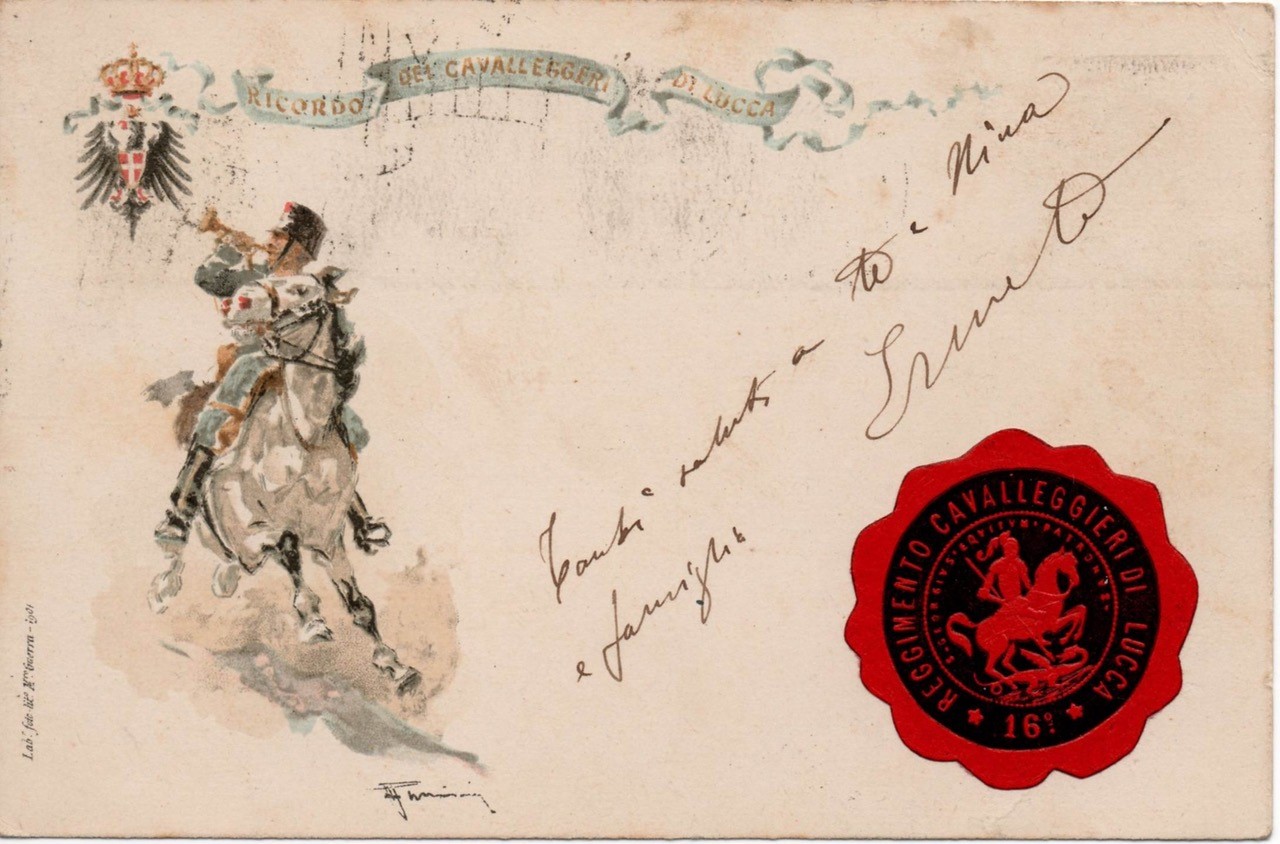 RICORDO DEI CAVALLEGGERI DI LUCCA
Tanti saluti a te e Nina
e famiglia
Ernesto
REGGIMENTO CAVALLEGGIERI DI LUCCA
S·GEORGIVS·EQVITVM·PATRONVS·
16º
Labº. foto-litº. Mº Guerra - 1901